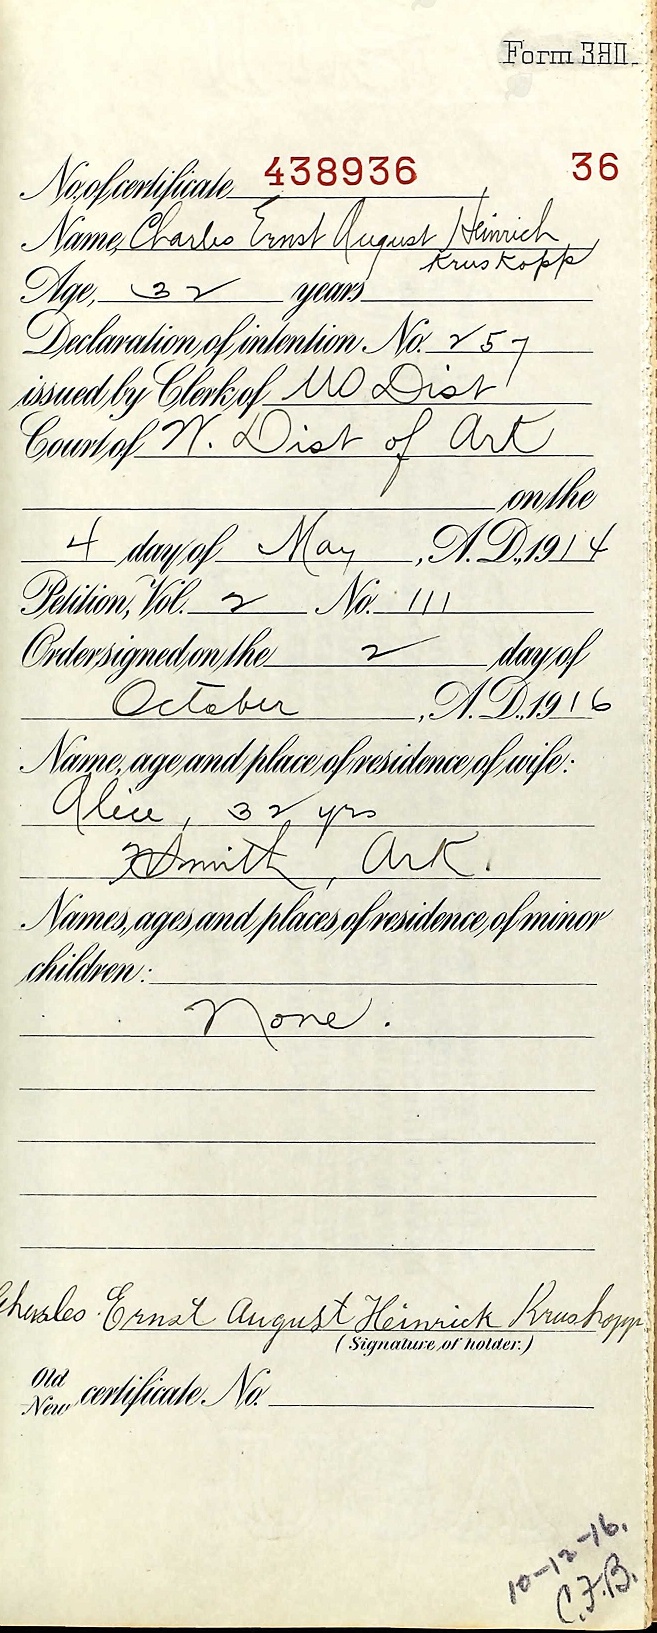 Form 380.
No. of certificate 438936 36
Name, Charles Ernst August Heinrich
Kruskopp
Age, 32 years
Declaration of intention No. 257
issued by Clerk of US Dist
Court of W. Dist of Ark
on the
4 day of May, A.D., 1914
Petition, Vol. 2 No. 111
Order signed on the 2 day of
October, A.D., 1916
Name, age and place of residence of wife:
Alice, 32 yrs
Ft Smith, Ark.
Names, ages, and places of residence of minor
children:
None.
Charles Ernst August Heinrick Kruskopp
(Signature of holder.)
Old
New certificate No.
10-12-16.
C.F.B.